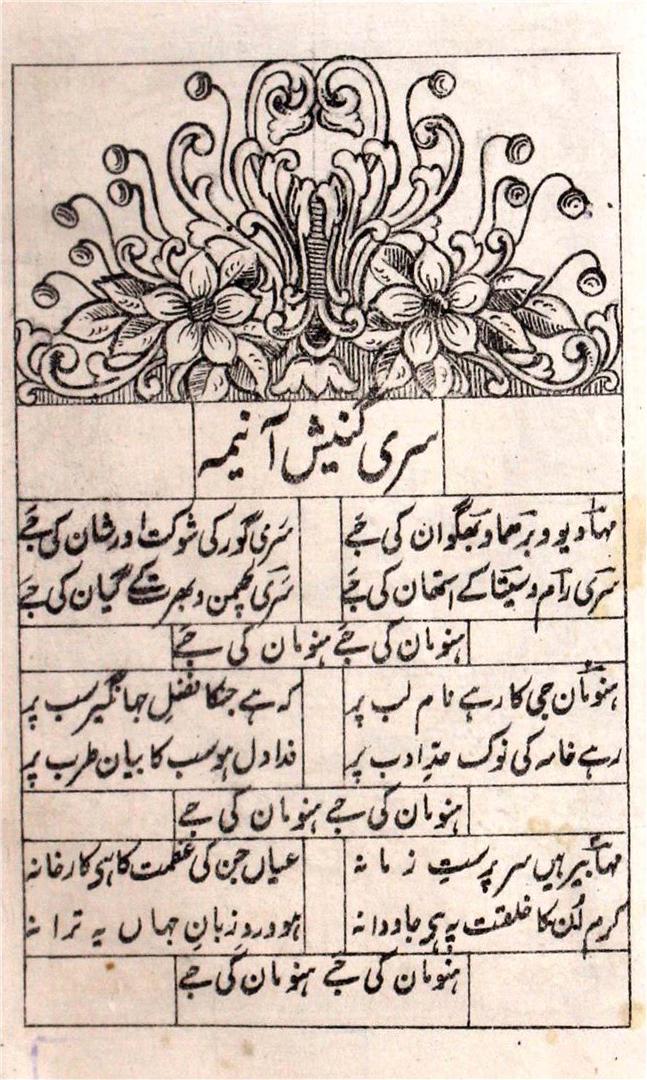 سری گنیش آ نیمہ
مہادیو و برھما و بھگوان کی جے سری گور کی شوکت اور شان کی جے
سری رام و سیتا کے استھان کی جے سری لچھمن و بھرت کے گیان کی جے
ہنومان کی جے ہنومان کی جے
ہنومان جی کا رہے نام لب پر کہ ہے جنکا فضل جہانگیر سب پر
رہے خامہ کی نوک حدِ ادب پر فدا دل ہو سب کا بیان طرب پر
ہنومان کی جے ہنومان کی جے
مہابیر ہیں سر پرستِ زمانہ عیاں جن کی عظمت کا ہی کارخانہ
کرم اُن کا خلقت پہ ہی جاودانہ ہو وردِ زبانِ جہاں یہ ترانہ
ہنومان کی جے ہنومان کی جے